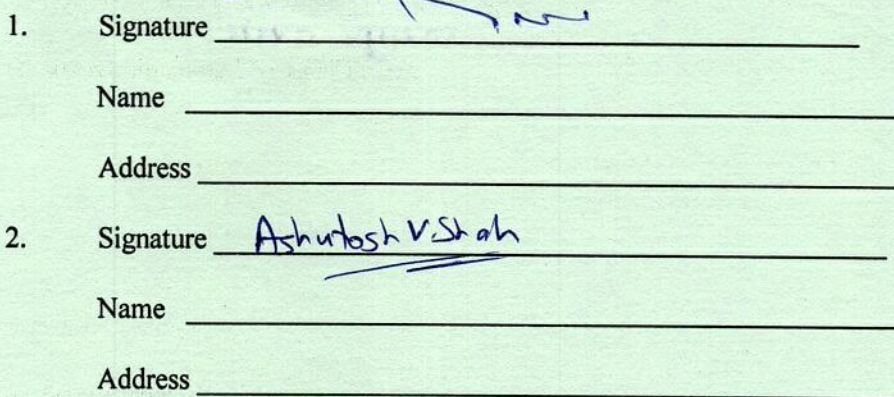 1. Signature
Name
Address
2. Signature Ashutosh V. Shah
Name
Address